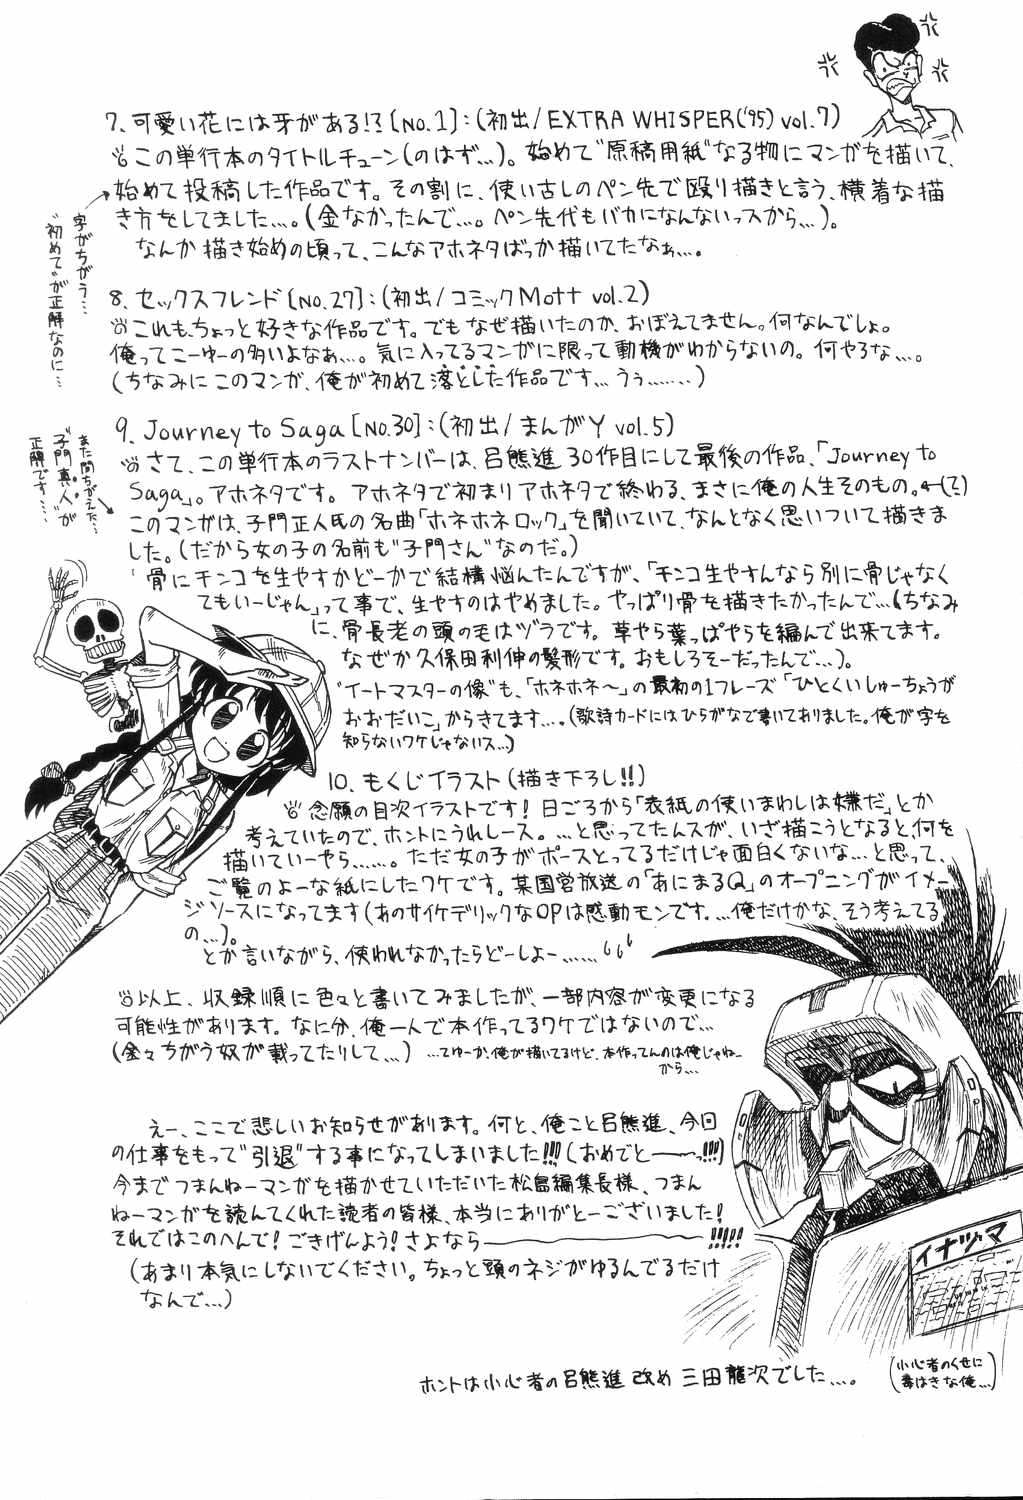 7、可愛い花には牙がある!?[No.1]:(初出/EXTRA WHISPER('95) vol.7)
この単行本のタイトルチューン(のはず…)。始めて"原稿用紙"なる物にマンガを描いて、
始めて投稿した作品です。その割に、使い古しのペン先で殴り描きと言う、横着な描
き方をしてました…。(金なかったんで…。ペン先代もバカになんないっスから…)。
なんか描き始めの頃って、こんなアホネタばっか描いてたなぁ…。
字がちがう…
"初めて"が正解なのに…
8、セックスフレンド[No.27]:(初出/コミックMott vol.2)
これも、ちょっと好きな作品です。でもなぜ描いたのか、おぼえてません。何なんでしょ。
俺ってこーゆーの多いよなぁ…。気に入ってるマンガに限って動機がわからないの。何やろな…。
(ちなみにこのマンガ、俺が初めて落とした作品です…うぅ……)
9、Journey to Saga[No.30]:(初出/まんがY vol.5)
さて、この単行本のラストナンバーは、呂熊進30作目にして最後の作品、「Journey to
Saga」。アホネタです。アホネタで初まりアホネタで終わる、まさに俺の人生そのもの。←(て)
このマンガは、子門正人氏の名曲「ホネホネロック」を聞いていて、なんとなく思いついて描きま
した。(だから女の子の名前も"子門さん"なのだ。)
また間ちがえた…
"子門真人"が
正解です…
骨にチンコを生やすかどーかで結構悩んだんですが、「チンコ生やすんなら別に骨じゃなく
てもいーじゃん」って事で、生やすのはやめました。やっぱり骨を描きたかったんで…(ちなみ
に、骨長老の頭の毛はヅラです。草やら葉っぱやらを編んで出来てます。
なぜか久保田利伸の髪形です。おもしろそーだったんで…)。
"イートマスターの像"も、「ホネホネ〜」の最初の1フレーズ「ひとくいしゅーちょうが
おおだいこ」からきてます…。(歌詩カードにはひらがなで書いてありました。俺が字を
知らないワケじゃないス…)
10、もくじイラスト(描き下ろし!!)
念願の目次イラストです!日ごろから「表紙の使いまわしは嫌だ」とか
考えていたので、ホントにうれレース。…と思ってたんスが、いざ描こうとなると、何を
描いていーやら……。ただ女の子がポースとってるだけじゃ面白くないな…と思って、
ご覧のよーな紙にしたワケです。某国営放送の「あにまるQ」のオープニングがイメー
ジソースになってます(あのサイケデリックなOPは感動モンです。…俺だけかな、そう考えてる
の…)。
とか言いながら、使われなかったらどーしよー……
以上、収録順に色々と書いてみましたが、一部内容が変更になる
可能性があります。なに分、俺一人で本作ってるワケではないので…
(全々ちがう奴が載ってたりして…) …てゆーか、俺が描いてるけど、本作ってんのは俺じゃねー
から…
えー、ここで悲しいお知らせがあります。何と、俺こと呂熊進、今回
の仕事をもって"引退"する事になってしまいました!!!(おめでと――っ!!!)
今までつまんねーマンガを描かせていただいた松島編集長様、つまん
ねーマンガを読んでくれた読者の皆様、本当にありがとーございました!
それではこのへんで!ごきげんよう!さよなら――――!!!!!
(あまり本気にしないでください。ちょっと頭のネジがゆるんでるだけ
なんで…)
イナヅマ
ホントは小心者の呂熊進 改め 三田龍次でした…。
(小心者のくせに
毒はきな俺…)